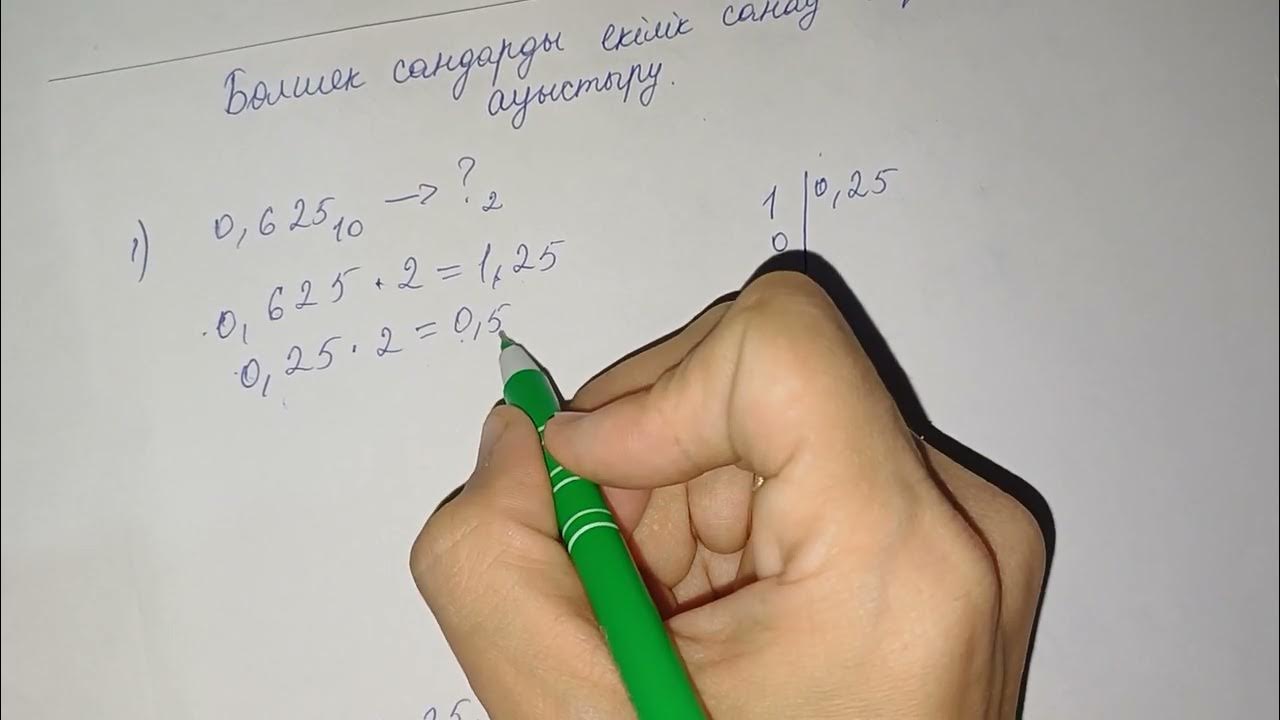 Бөлшек сандарды екілік санау
ауыстыру.
1) 0,625₁₀ → ?₂
0,625 · 2 = 1,25
0,25 · 2 = 0,5
1 | 0,25
0 |
25